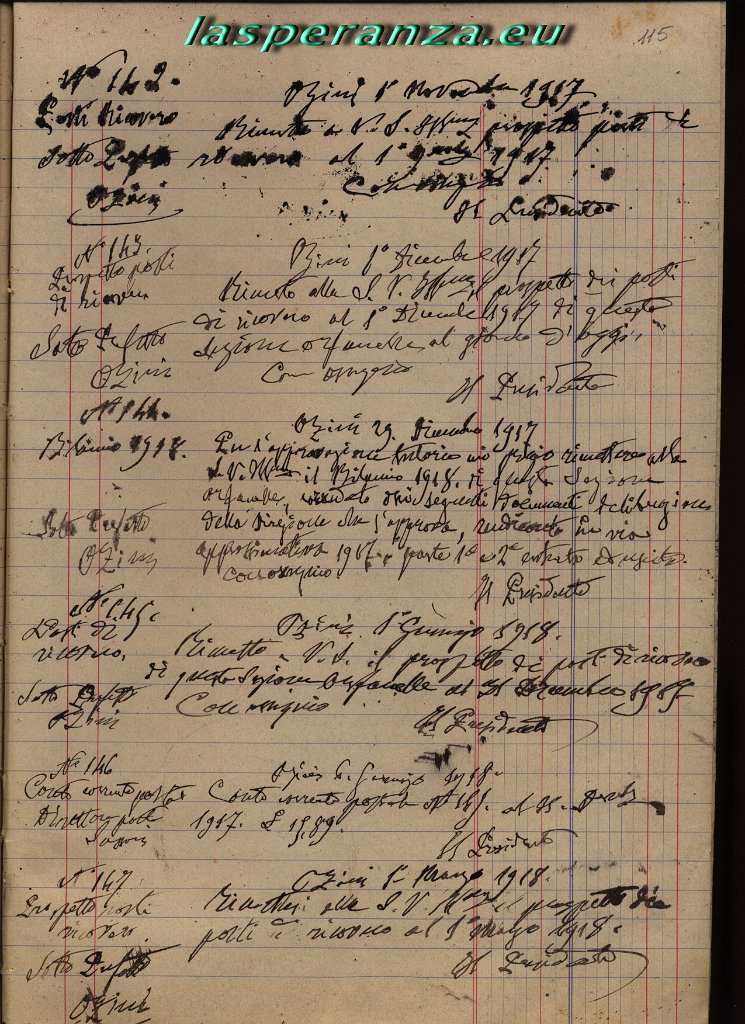 lasperanza.eu
115
Nº 142.
Posti ricovero
Sotto Prefetto
Ozieri
Ozieri 1º Novembre 1917
Rimetto a V. S. Ill.ma prospetto posti di
ricovero al 1º 1917.
Con ossequio
Il Presidente
Nº 143.
Prospetto posti
di ricovero
Sotto Prefetto
Ozieri
Ozieri 1º Dicembre 1917
Rimetto alla S. V. Ill.ma il prospetto dei posti
di ricovero al 1º Dicembre 1917 di questa
Sezione al giorno d'oggi.
Con ossequio
Il Presidente
Nº 144.
Bilancio 1918.
Sotto Prefetto
Ozieri
Ozieri 29 Dicembre 1917
Per l'approvazione tutoria mi pregio rimettere alla
S. V. Ill.ma il Bilancio 1918 di questa Sezione
dai seguenti documenti deliberazione
della Direzione che l'approva, rendiconto in via
approssimativa 1917 parte 1ª e 2ª entrata ed uscita.
Con ossequio.
Il Presidente
Nº 145.
Posti di
ricovero.
Sotto Prefetto
Ozieri
Ozieri 1º 1918.
Rimetto a V. S. il prospetto di posti di ricovero
di questa Sezione al 31 Dicembre 1917
Con ossequio
Il Presidente
Nº 146
Conto corrente postale
Direttore poste
Sassari
Ozieri 1918.
Conto corrente postale al 31
1917. L 15,89.
Il Presidente
Nº 147
Prospetto posti
ricovero.
Sotto Prefetto
Ozieri
Ozieri 1º Marzo 1918.
alla S. V. Ill.ma il prospetto dei
posti di ricovero al 1º Marzo 1918.
Il Presidente